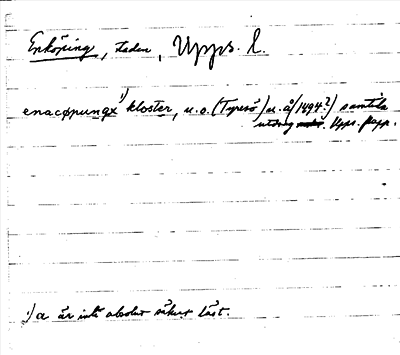 Enköping, staden, Upps. l.
enacopungx¹⁾ kloster, u.o. (Tyresö) u.å (1494?) samtida
utdrag. Upps. papp.
¹⁾ a är inte absolut säkert läst.